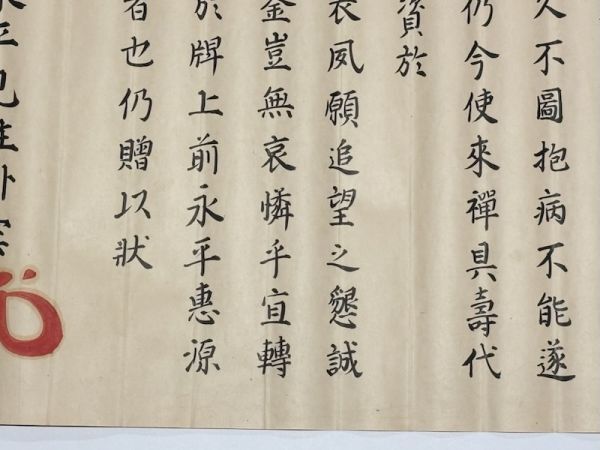 久不圖抱病不能遂
仍今使來禪具壽代
資於
表夙願追望之懇誠
金豈無哀憐乎宜轉
於牌上前永平惠源
者也仍贈以狀
永平見住卟